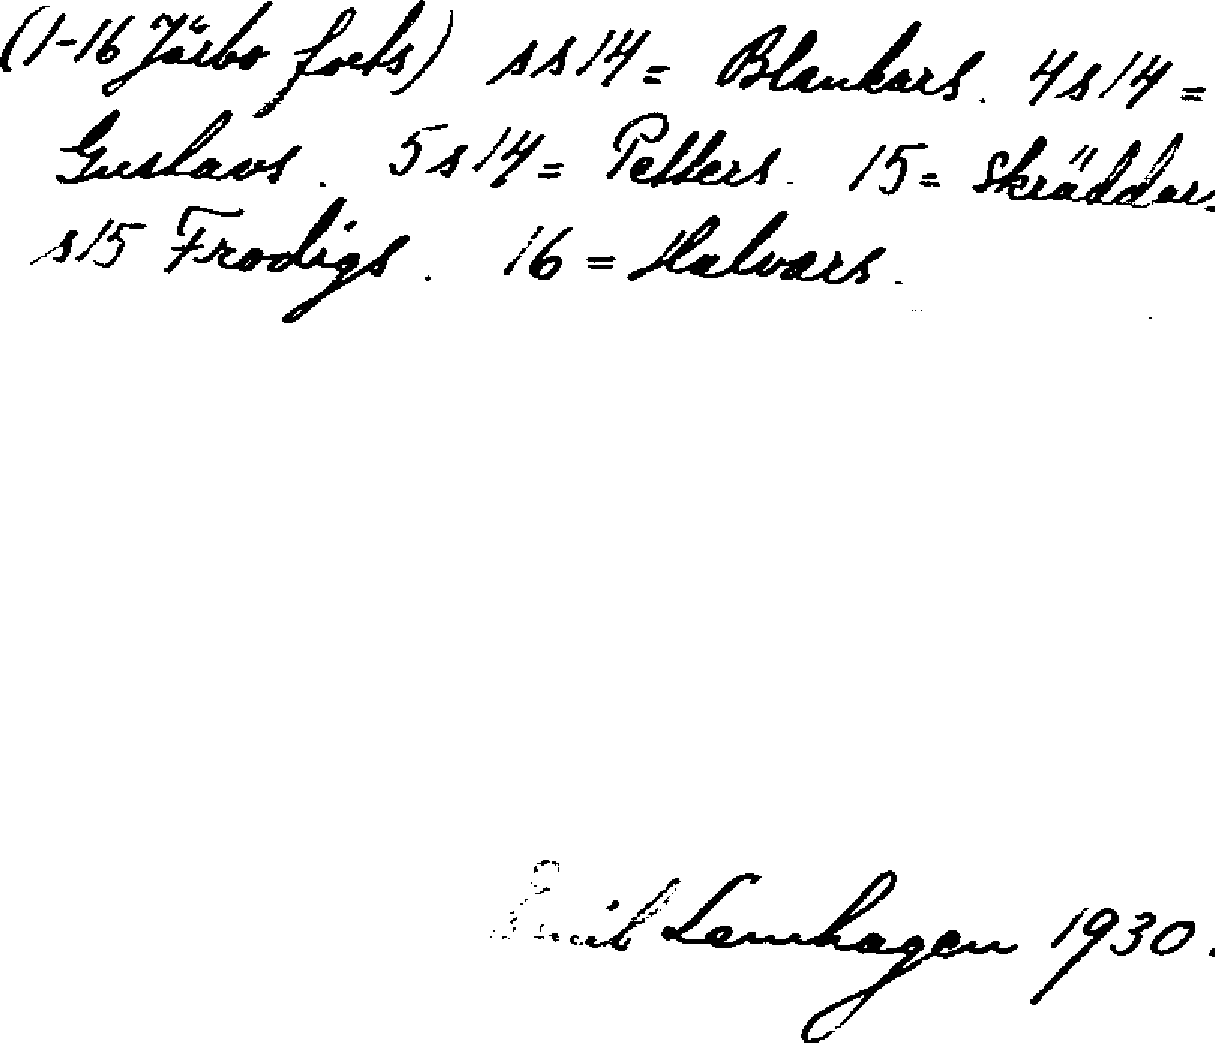 (1-16 Järbo forts) ss14 = Blankars. 4s14 =
Gustavs. 5s14 = Petters. 15 = Skräddars
s15 Frodigs. 16 = Halvars.
Emil Lemhagen 1930.